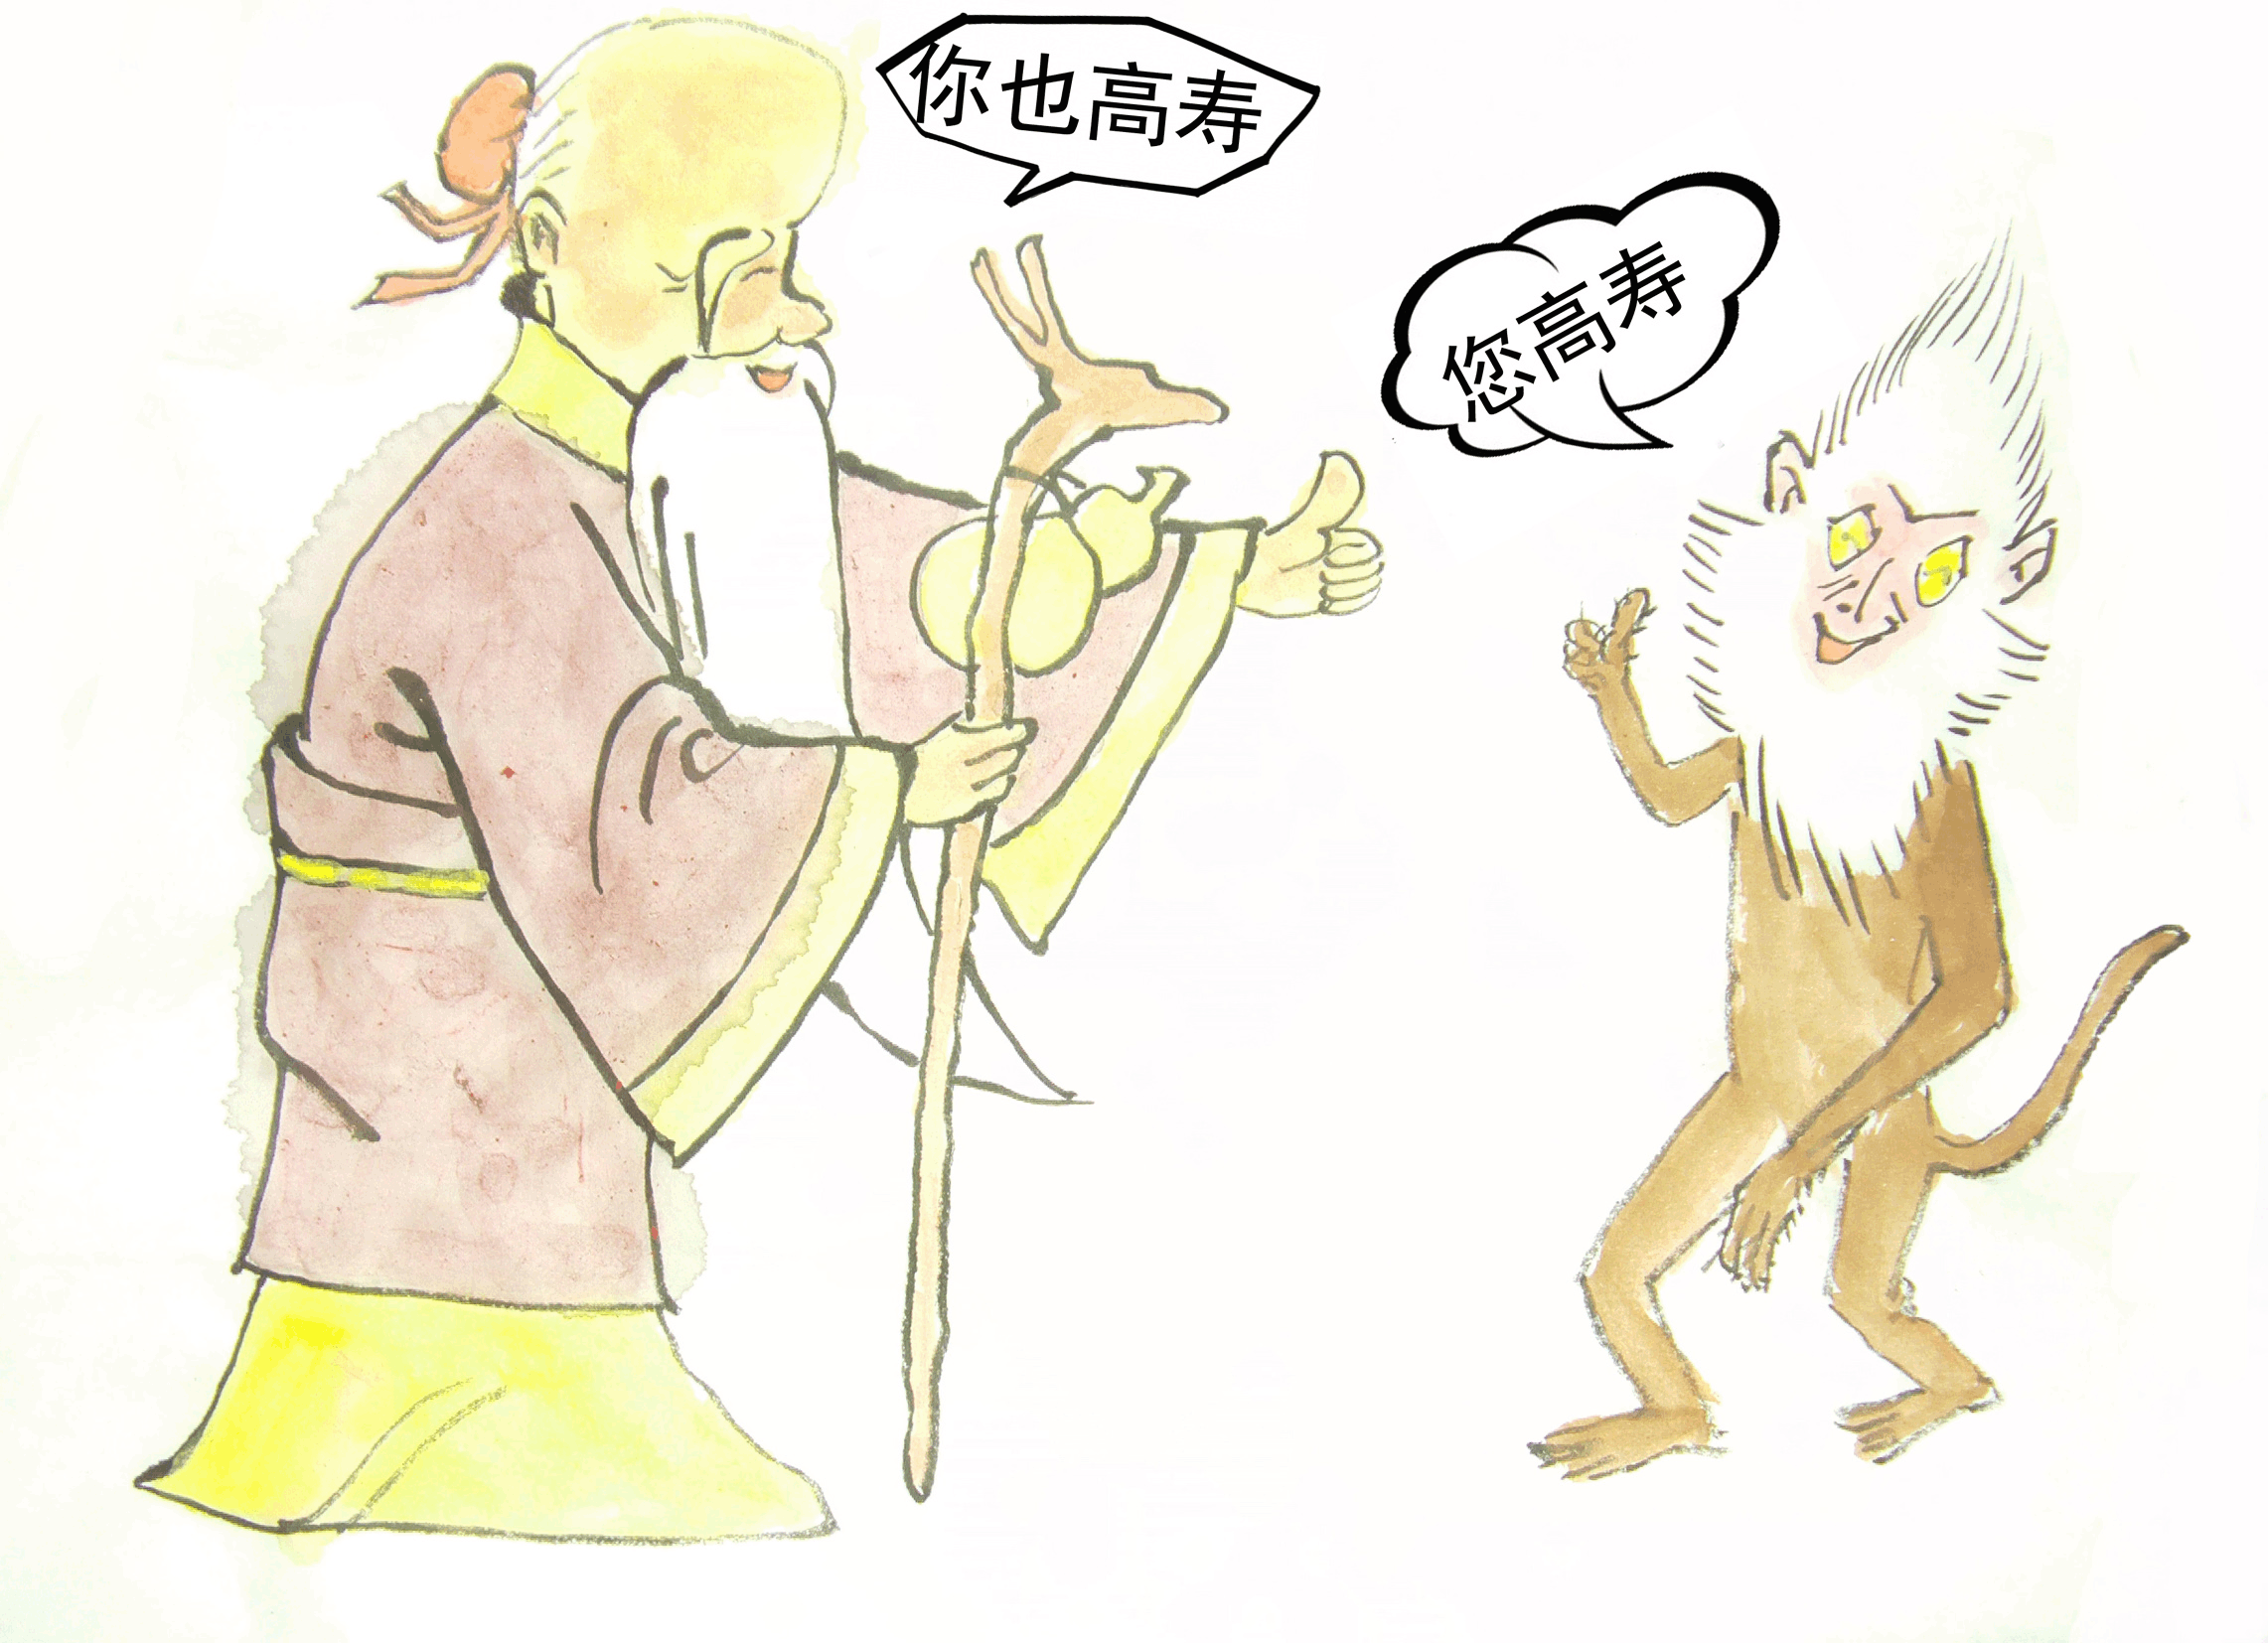 你也高寿
您高寿